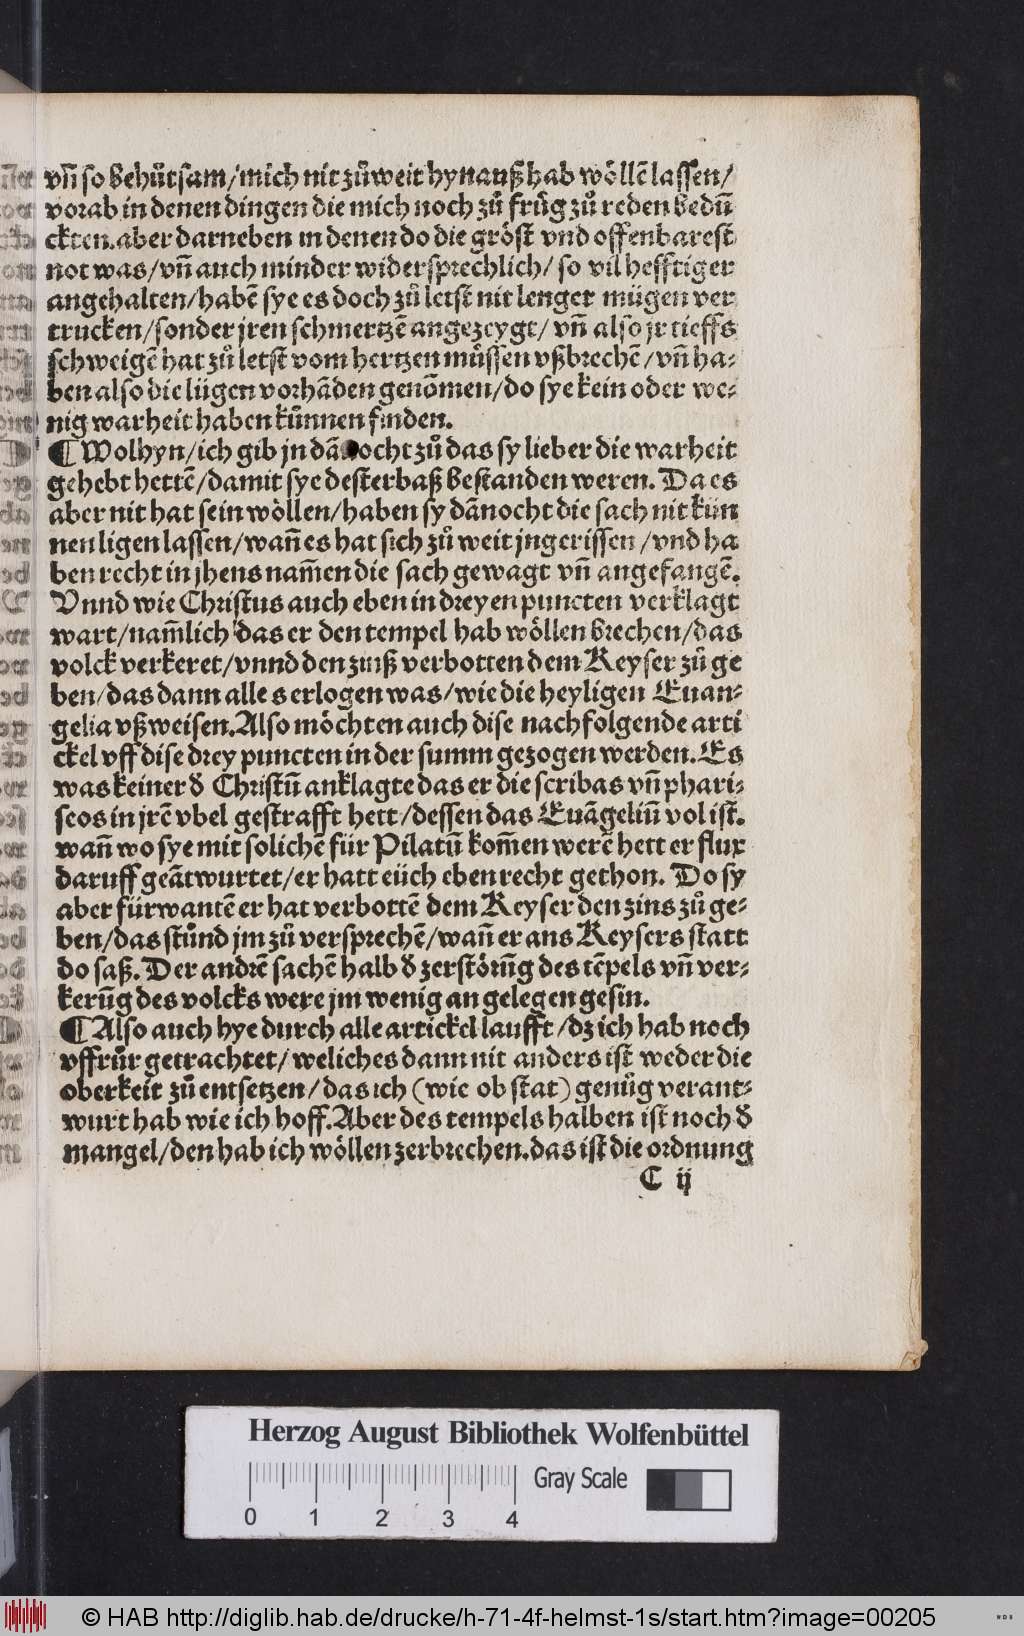 vn̄ so behůtsam/mich nit zůweit hynauß hab wöllē lassen/
vorab in denen dingen die mich noch zů frůg zů reden bedū
ckten.aber darneben in denen do die gröst vnd offenbarest
not was/vn̄ auch minder widersprechlich/ so vil hefftiger
angehalten/habē sye es doch zů letst nit lenger mügen ver
trucken/sonder jren schmertzē angezeygt/ vn̄ also jr tieffs
schweigē hat zů letst vom hertzen můssen vßbrechē/vn̄ ha⸗
ben also die lügen vorhāden genōmen/do sye kein oder we⸗
nig warheit haben künnen finden.
¶ Wolhyn/ich gib jn dānocht zů das sy lieber die warheit
gehebt hettē/damit sye desterbaß bestanden weren. Da es
aber nit hat sein wöllen/haben sy dānocht die sach nit kün
nen ligen lassen/wan̄ es hat sich zů weit jngerissen/vnd ha
ben recht in jhens nam̄en die sach gewagt vn̄ angefangē.
Vnnd wie Christus auch eben in dreyen puncten verklagt
wart/nam̄lich das er den tempel hab wöllen brechen/das
volck verkeret/vnnd den zinß verbotten dem Keyser zů ge
ben/das dann alles erlogen was/wie die heyligen Euan⸗
gelia vßweisen.Also möchten auch dise nachfolgende arti
ckel vff dise drey puncten in der summ gezogen werden.Es
was keiner đ Christū anklagte das er die scribas vn̄ phari⸗
seos in jrē vbel gestrafft hett/dessen das Euāgeliū vol ist.
wan̄ wo sye mit solichē für Pilatū kom̄en werē hett er flux
daruff geātwurtet/er hatt eüch eben recht gethon. Do sy
aber fürwantē er hat verbottē dem Keyser den zins zů ge⸗
ben/das stůnd jm zů versprechē/wan̄ er ans Keysers statt
do saß. Der andrē sachē halb đ zerstörūg des tēpels vn̄ ver⸗
kerūg des volcks were jm wenig angelegen gesin.
¶ Also auch hye durch alle artickel laufft/dz ich hab noch
vffrůr getrachtet/weliches dann nit anders ist weder die
oberkeit zů entsetzen/das ich (wie ob stat) genůg verant⸗
wurt hab wie ich hoff.Aber des tempels halben ist noch đ
mangel/den hab ich wöllen zerbrechen.das ist die ordnung
C ij
Herzog August Bibliothek Wolfenbüttel
Gray Scale
0 1 2 3 4
© HAB http://diglib.hab.de/drucke/h-71-4f-helmst-1s/start.htm?image=00205